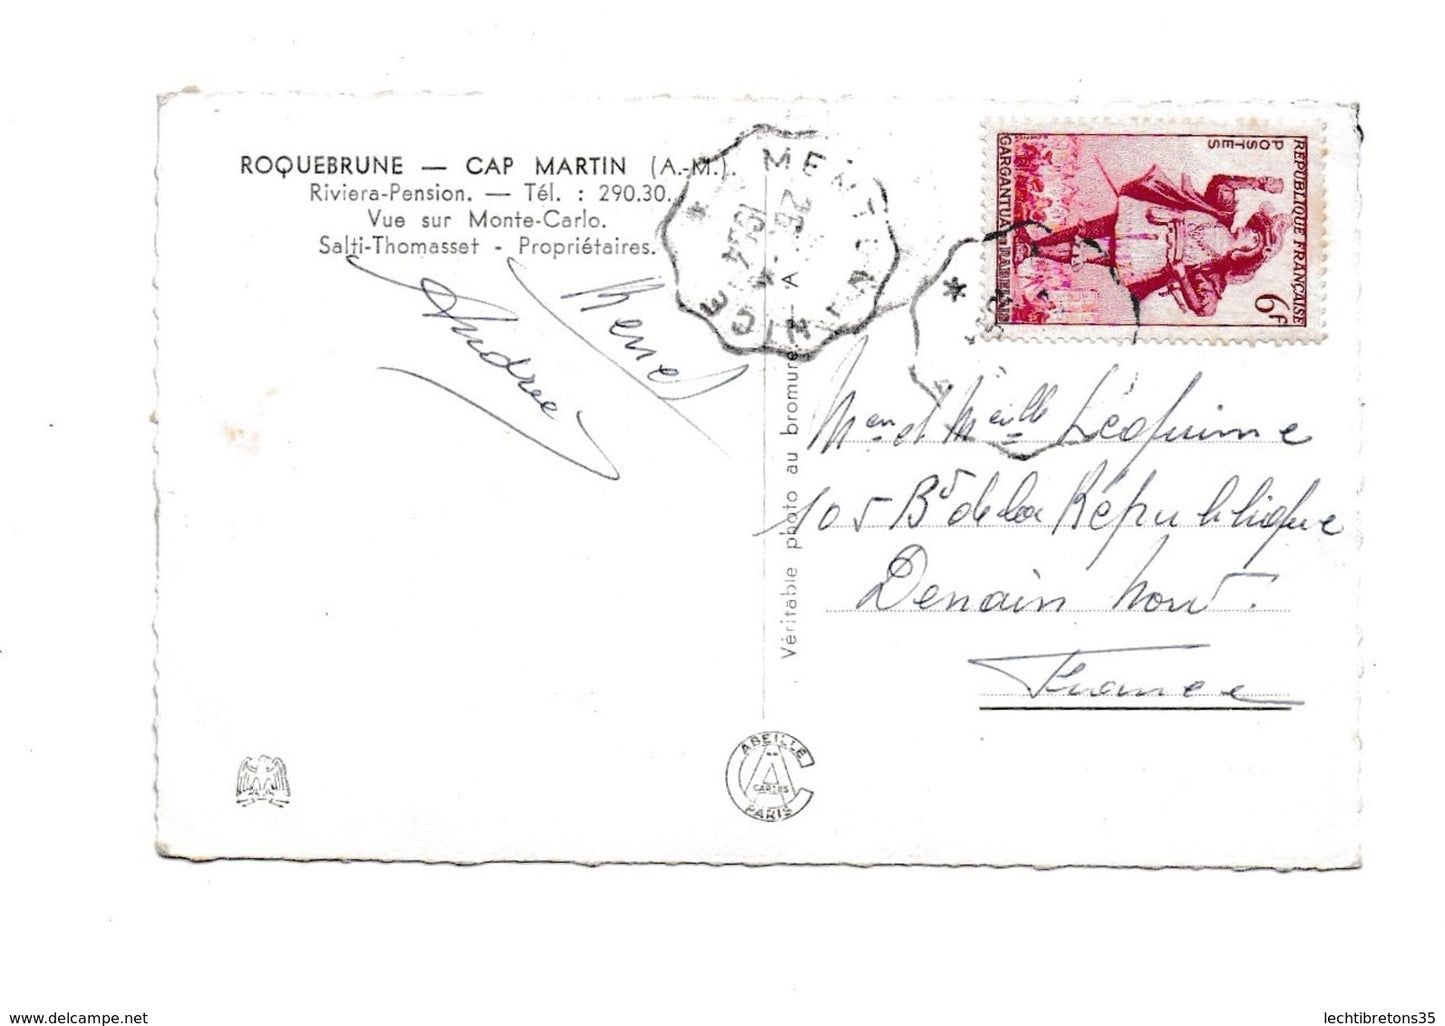 ROQUEBRUNE — CAP MARTIN (A.-M.).
Riviera-Pension. — Tél. : 290.30.
Vue sur Monte-Carlo.
Salti-Thomasset - Propriétaires.
MENTON A NICE
1954
RÉPUBLIQUE FRANÇAISE
POSTES
6F
GARGANTUA DE RABELAIS
René
Andrée
Véritable photo au bromure.
105 Bd de la République
Denain Nord.
France
ABEILLE
CARTES
PARIS
www.delcampe.net
lechtibretons35